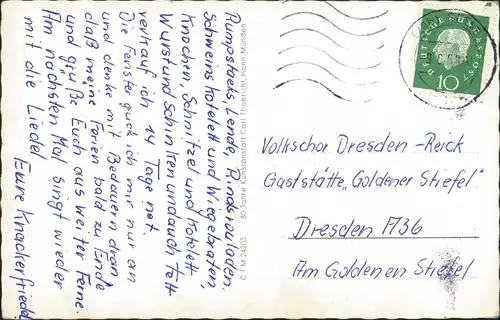 Rumpsteeks, Lende, Rindsrouladen,
Schweinskotelett und Wiegebraten,
Knochen, Schnitzel und Kotelett
Wurst und Schinken und auch Fett
verkauf ich 14 Tage net.
Die Fenster guck ich mir nur an
und denke mit Bedauern dran
daß meine Ferien bald zu Ende
und grüße Euch aus weiter Ferne.
Am nächsten Mal singt wieder
mit die Liedel
Eure Knackerfriedel
80 Jahre Kunstanstalt Carl Thoericht, Hann. Münden
C T M 24203
DEUTSCHE BUNDESPOST
10
Volkschor Dresden-Reick
Gaststätte „Goldener Stiefel“
Dresden A36
Am Goldenen Stiefel